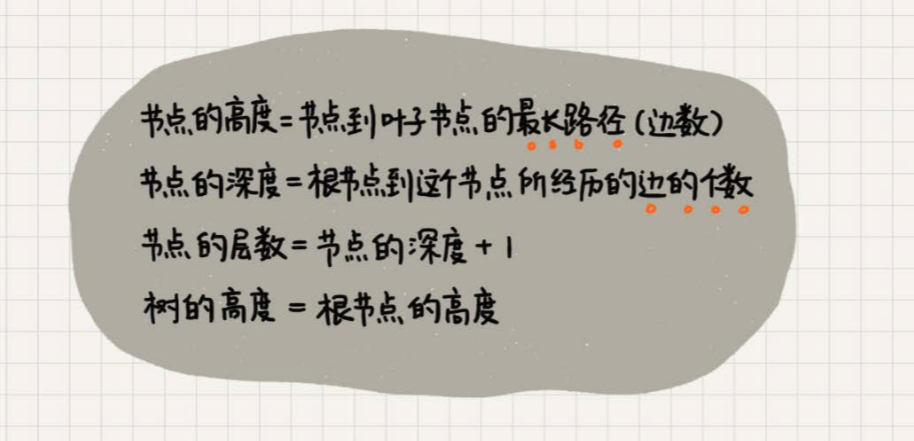 节点的高度=节点到叶子节点的最长路径(边数)
节点的深度=根节点到这个节点所经历的边的个数
节点的层数=节点的深度+1
树的高度=根节点的高度